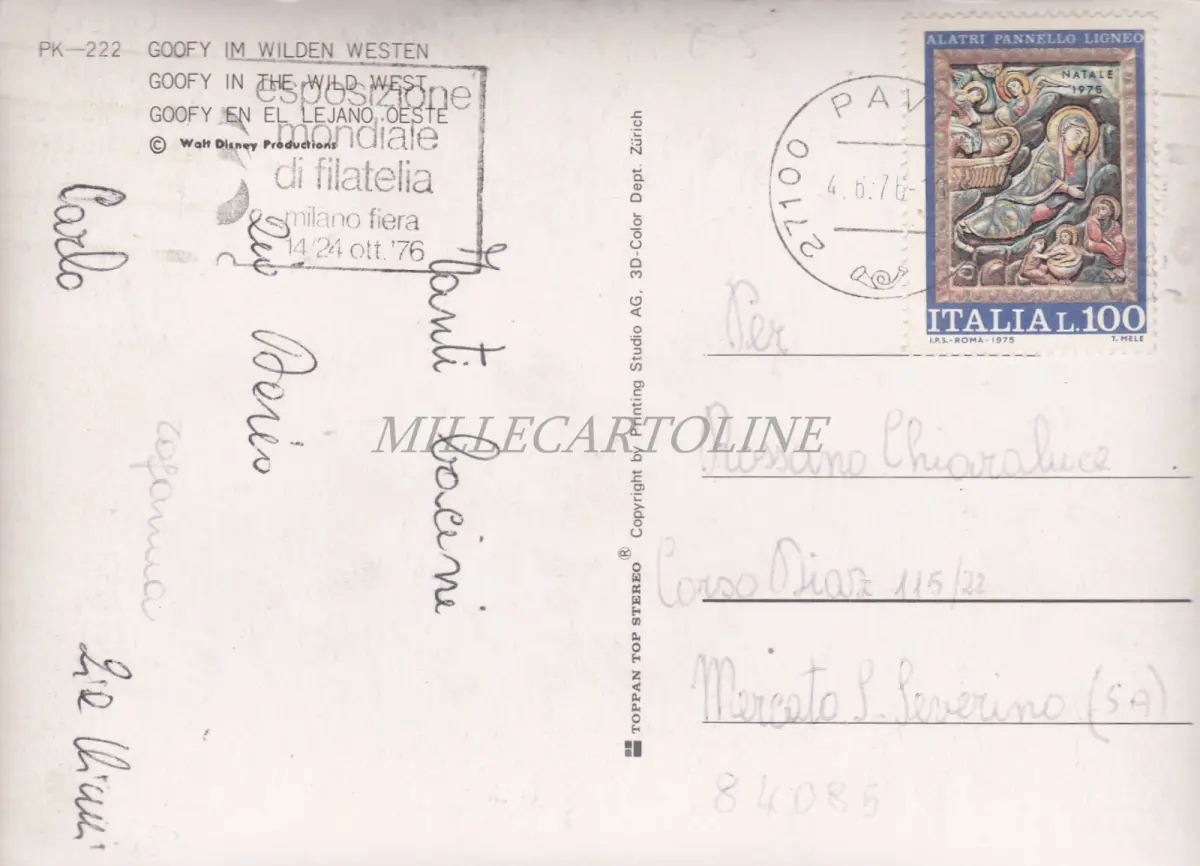 PK-222 GOOFY IM WILDEN WESTEN
GOOFY IN THE WILD WEST
GOOFY EN EL LEJANO OESTE
© Walt Disney Productions
esposizione
mondiale
di filatelia
milano fiera
14/24 ott. '76
27100 PAV
4.6.76
ALATRI PANNELLO LIGNEO
NATALE
1975
ITALIA L.100
I.P.S.-ROMA-1975 T. MELE
Tanti bacini
Zio
Carlo
Zia Mimi
TOPPAN TOP STEREO ® Copyright by Printing Studio AG, 3D-Color Dept. Zürich
MILLECARTOLINE
Per
Rossano Chiaraluce
Corso Diaz 115/22
Mercato S. Severino (SA)
84085